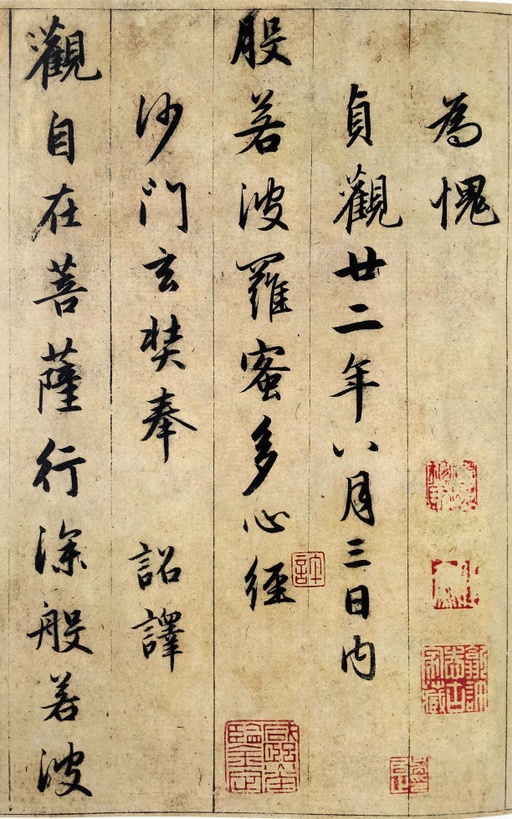 為愧
貞觀廿二年八月三日內
般若波羅蜜多心經
沙門玄奘奉 詔譯
觀自在菩薩行深般若波
許